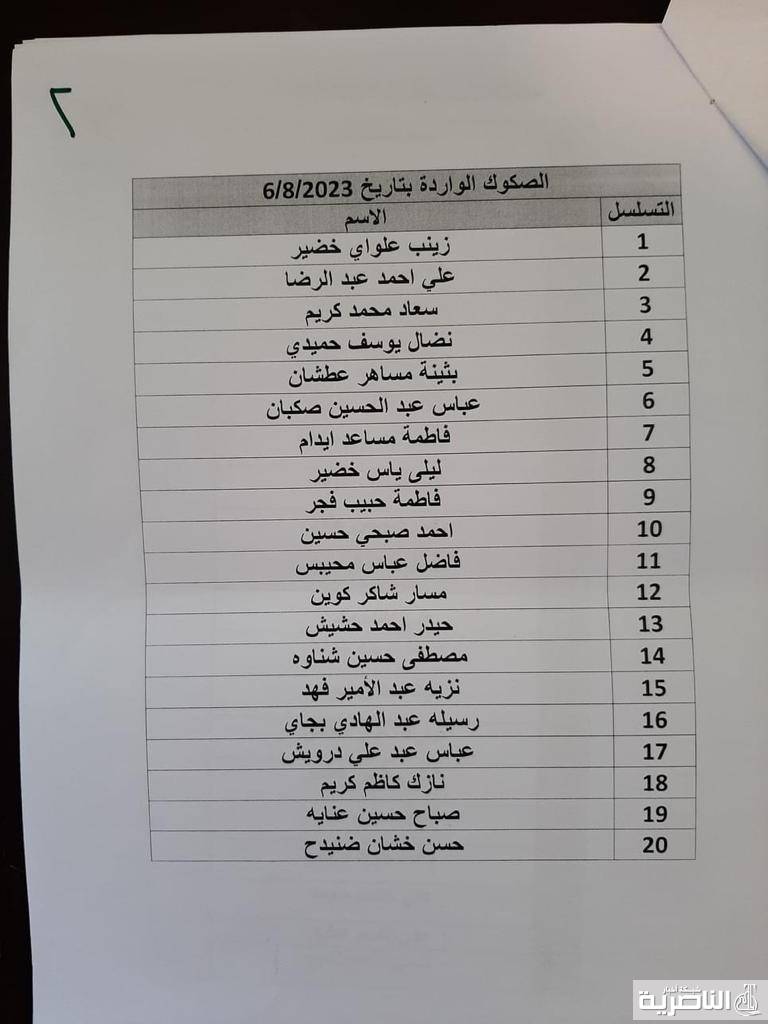 ٦
الصكوك الواردة بتاريخ 6/8/2023
التسلسل الاسم
1 زينب علواي خضير
2 علي احمد عبد الرضا
3 سعاد محمد كريم
4 نضال يوسف حميدي
5 بثينة مساهر عطشان
6 عباس عبد الحسين صكبان
7 فاطمة مساعد ايدام
8 ليلى ياس خضير
9 فاطمة حبيب فجر
10 احمد صبحي حسين
11 فاضل عباس محيبس
12 مسار شاكر كوين
13 حيدر احمد حشيش
14 مصطفى حسين شناوه
15 نزيه عبد الأمير فهد
16 رسيله عبد الهادي بجاي
17 عباس عبد علي درويش
18 نازك كاظم كريم
19 صباح حسين عنايه
20 حسن خشان ضنيدح
شبكة أخبار
الناصرية